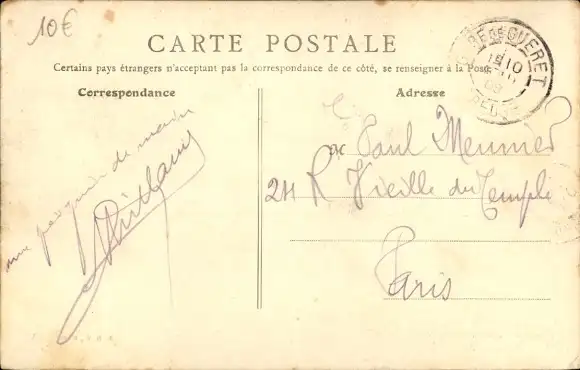 10€
CARTE POSTALE
Certains pays étrangers n'acceptant pas la correspondance de ce côté, se renseigner à la Poste
Correspondance
Adresse
une poignée de main
Paul Meunier
24 R Vieille du Temple
Paris
GUERET